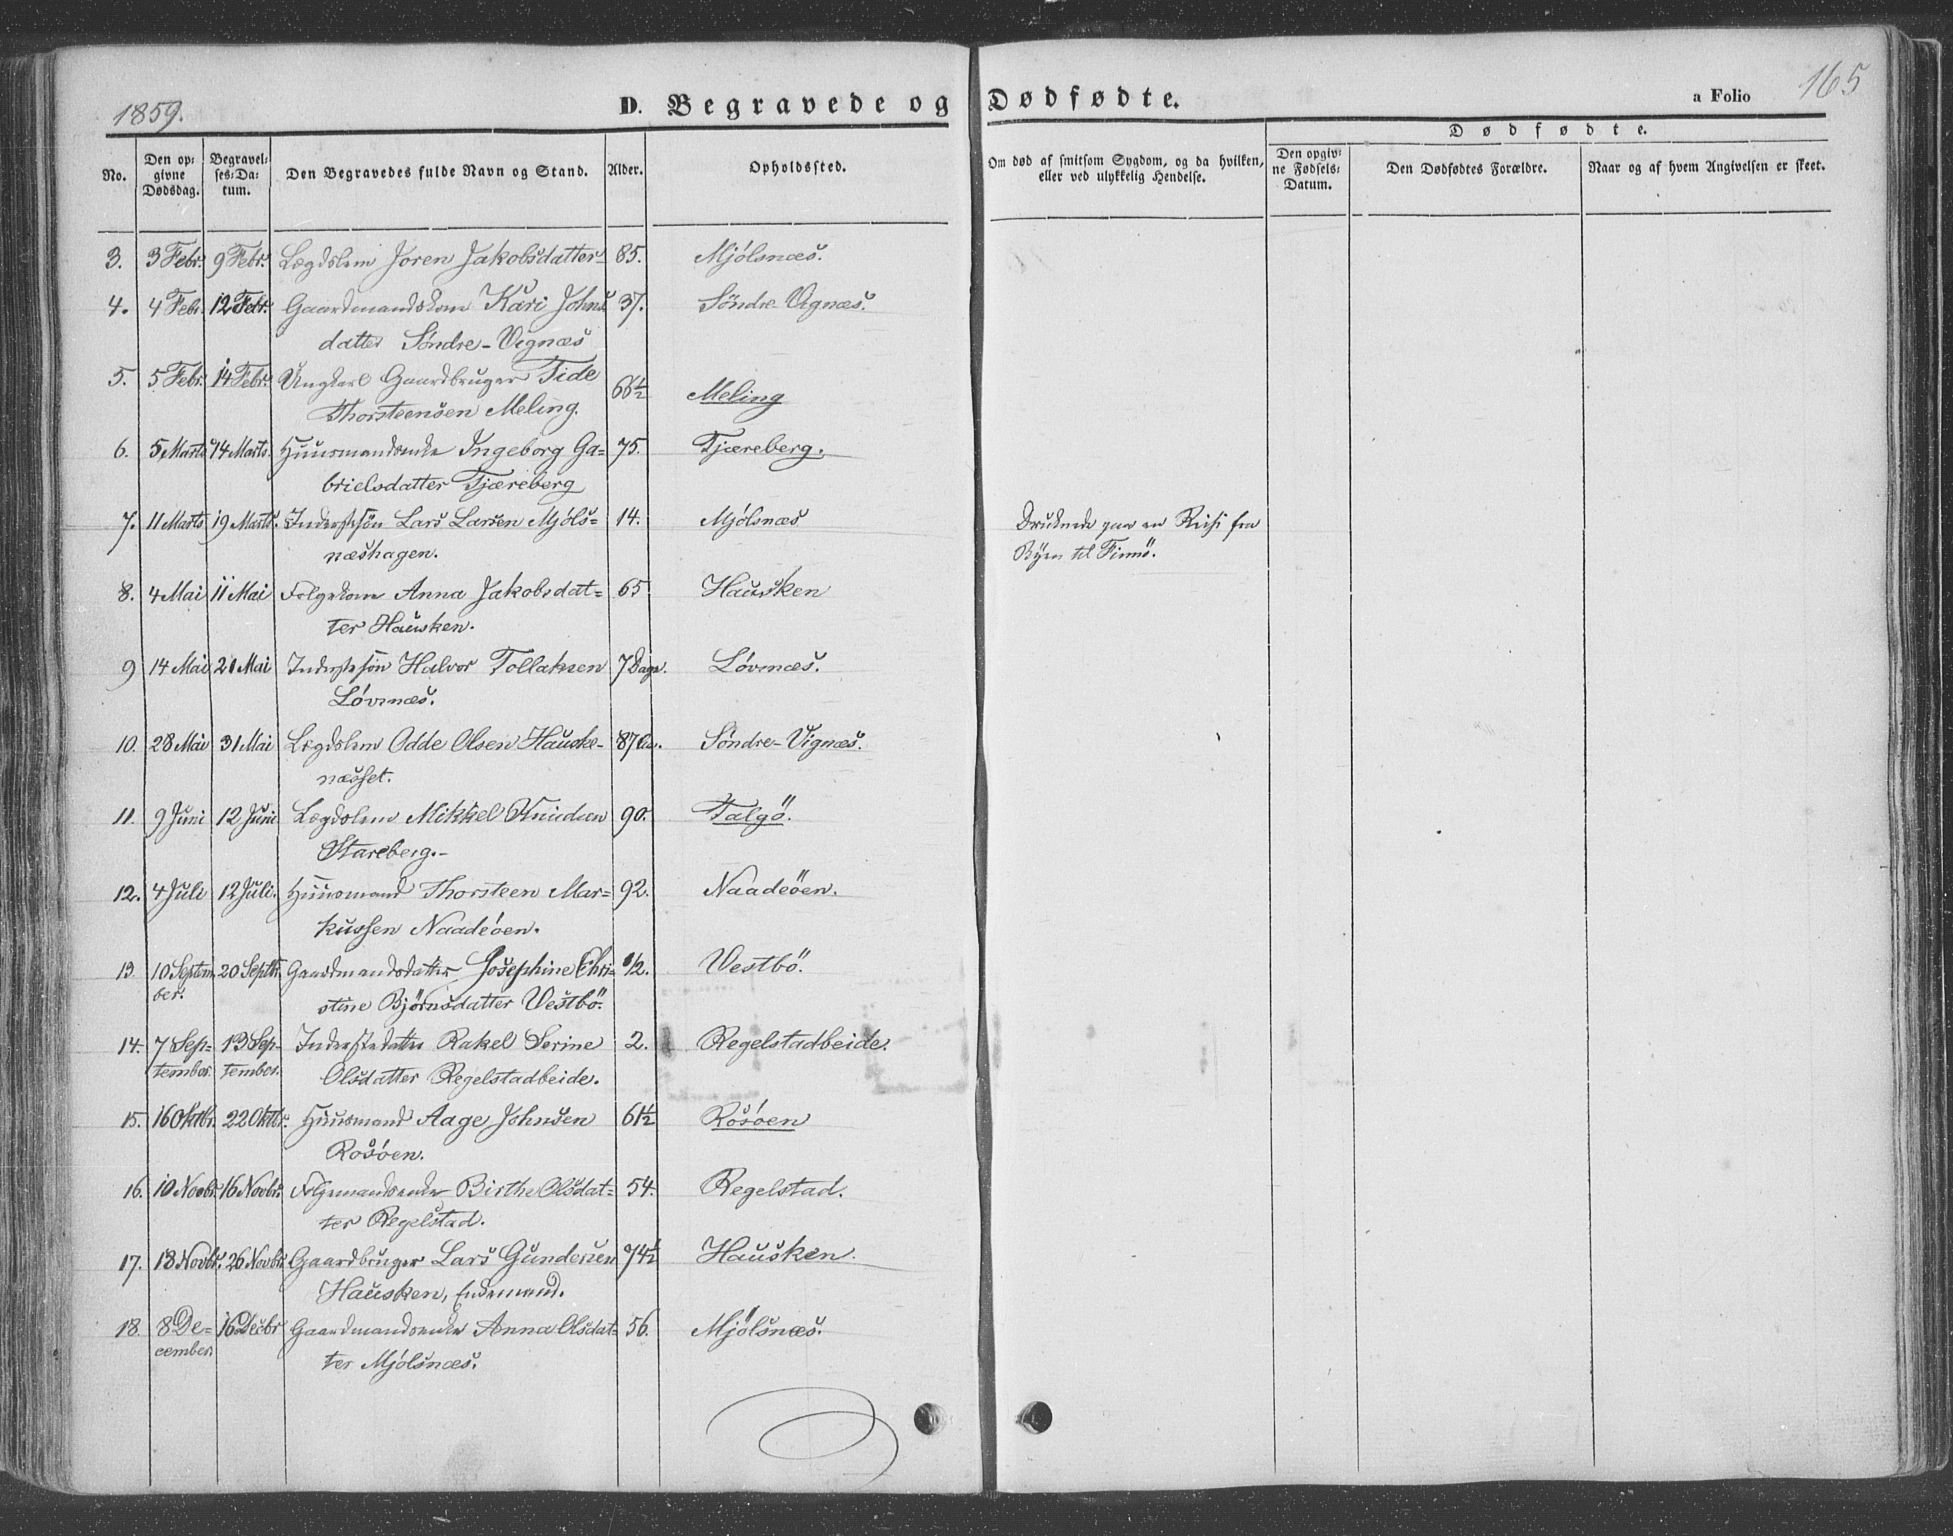 1859. D. Begravede og Dødfødte. a Folio 165
Dødfødte.
No. Den opgivne Dødsdag. Begravelses-Datum. Den Begravedes fulde Navn og Stand. Alder. Opholdssted. Om død af smitsom Sygdom, og da hvilken, eller ved ulykkelig Hendelse. Den opgivne Fødsels-Datum. Den Dødfødtes Forældre. Naar og af hvem Angivelsen er skeet.
3. 3 Febr. 9 Febr. Lægdslem Joren Jakobsdatter 85. Mjølsnæs.
4. 4 Febr. 12 Febr. Gaardmandskone Kari Johns 37. Söndre-Vignæs.
datter Söndre-Vignæs
5. 5 Febr. 14 Febr. Ungkarl Gaardbruger Tide 66½ Meling
Thorsteensen Meling.
6. 5 Marts 14 Marts. Huusmandsenke Ingeborg Ga= 75. Tjæreberg.
brielsdatter Tjæreberg
7. 11 Marts 19 Marts. Inderstesön Lars Larsen Mjöls= 14. Mjölsnæs Druknede paa en Reise fra
næshagen. Byen til Finnö.
8. 4 Mai 11 Mai Folgekone Anna Jakobsdat= 65 Hausken
ter Hausken.
9 14 Mai 21 Mai Inderstesön Halvor Tollaksen 7 Dage. Lövnæs.
Lövnæs.
10. 28 Mai 31 Mai Lægdslem Odde Olsen Hauske- 87 Söndre-Vignæs.
næsset.
11. 9 Juni 12 Juni Lægdslem Mikkel Knudsen 90. Talgö.
Stareberg.-
12. 4 Juli 12 Juli. Huusmand Thorsteen Mar= 92. Naadeöen.
kussen Naadeöen.
13 10 Septem 20 Septbr. Gaardmandsdatter Josephine Chri- ½. Vestbö.
ber. stine Björnsdatter Vestbö.
14. 7 Sep= 13 Sep- Inderstedatter Rakel Serine 2. Regelstadbeide.
tember. tember. Olsdatter Regelstadbeide.
15. 16 Oktbr. 22 Oktbr. Huusmand Aage Johnsen 61½ Rosöen
Rosöen.
16. 10 Novbr. 16 Novbr. Folgemandsenke Birthe Olsdat= 54. Regelstad.
ter Regelstad.
17. 18 Novbr. 26 Novbr. Gaardbruger Lars Gundersen 74½ Hausken.
Hausken, Enkemand.
18. 8 De= 16 Decbr Gaardmandsenke Anna Olsdat= 56. Mjölsnæs.
cember. ter Mjölsnæs.